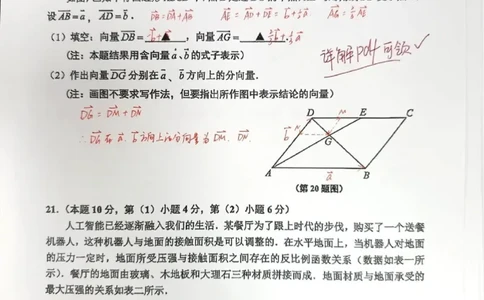 设 AB=a , AD=b . DB=DA+AB AE=AD+DE=b+½a AG=⅔AE
(1) 填空: 向量 DB= ▲ , 向量 AG= ▲ ⅔b+⅓a.
(注: 本题结果用含向量 a、b 的式子表示)
详解pdf可领✓
(2) 作出向量 DG 分别在 a、b 方向上的分向量.
(注: 画图不要求写作法, 但要指出所作图中表示结论的向量)
DG=DM+DN
∴DG在a、b方向上的分向量为DM、DN.
D N E C
M G
b
A a B
(第 20 题图)
21. (本题 10 分, 第 (1) 小题 4 分, 第 (2) 小题 6 分)
人工智能已经逐渐融入我们的生活. 某餐厅为了跟上时代的步伐, 购买了一个送餐
机器人, 这种机器人与地面的接触面积是可以调整的. 在水平地面上, 当机器人对地面
的压力一定时, 地面所受压强与接触面积之间存在的反比例函数关系 (数据如表一所
示). 餐厅的地面由玻璃、木地板和大理石三种材质拼接而成. 地面材质与地面承受的
最大压强的关系如表二所示.